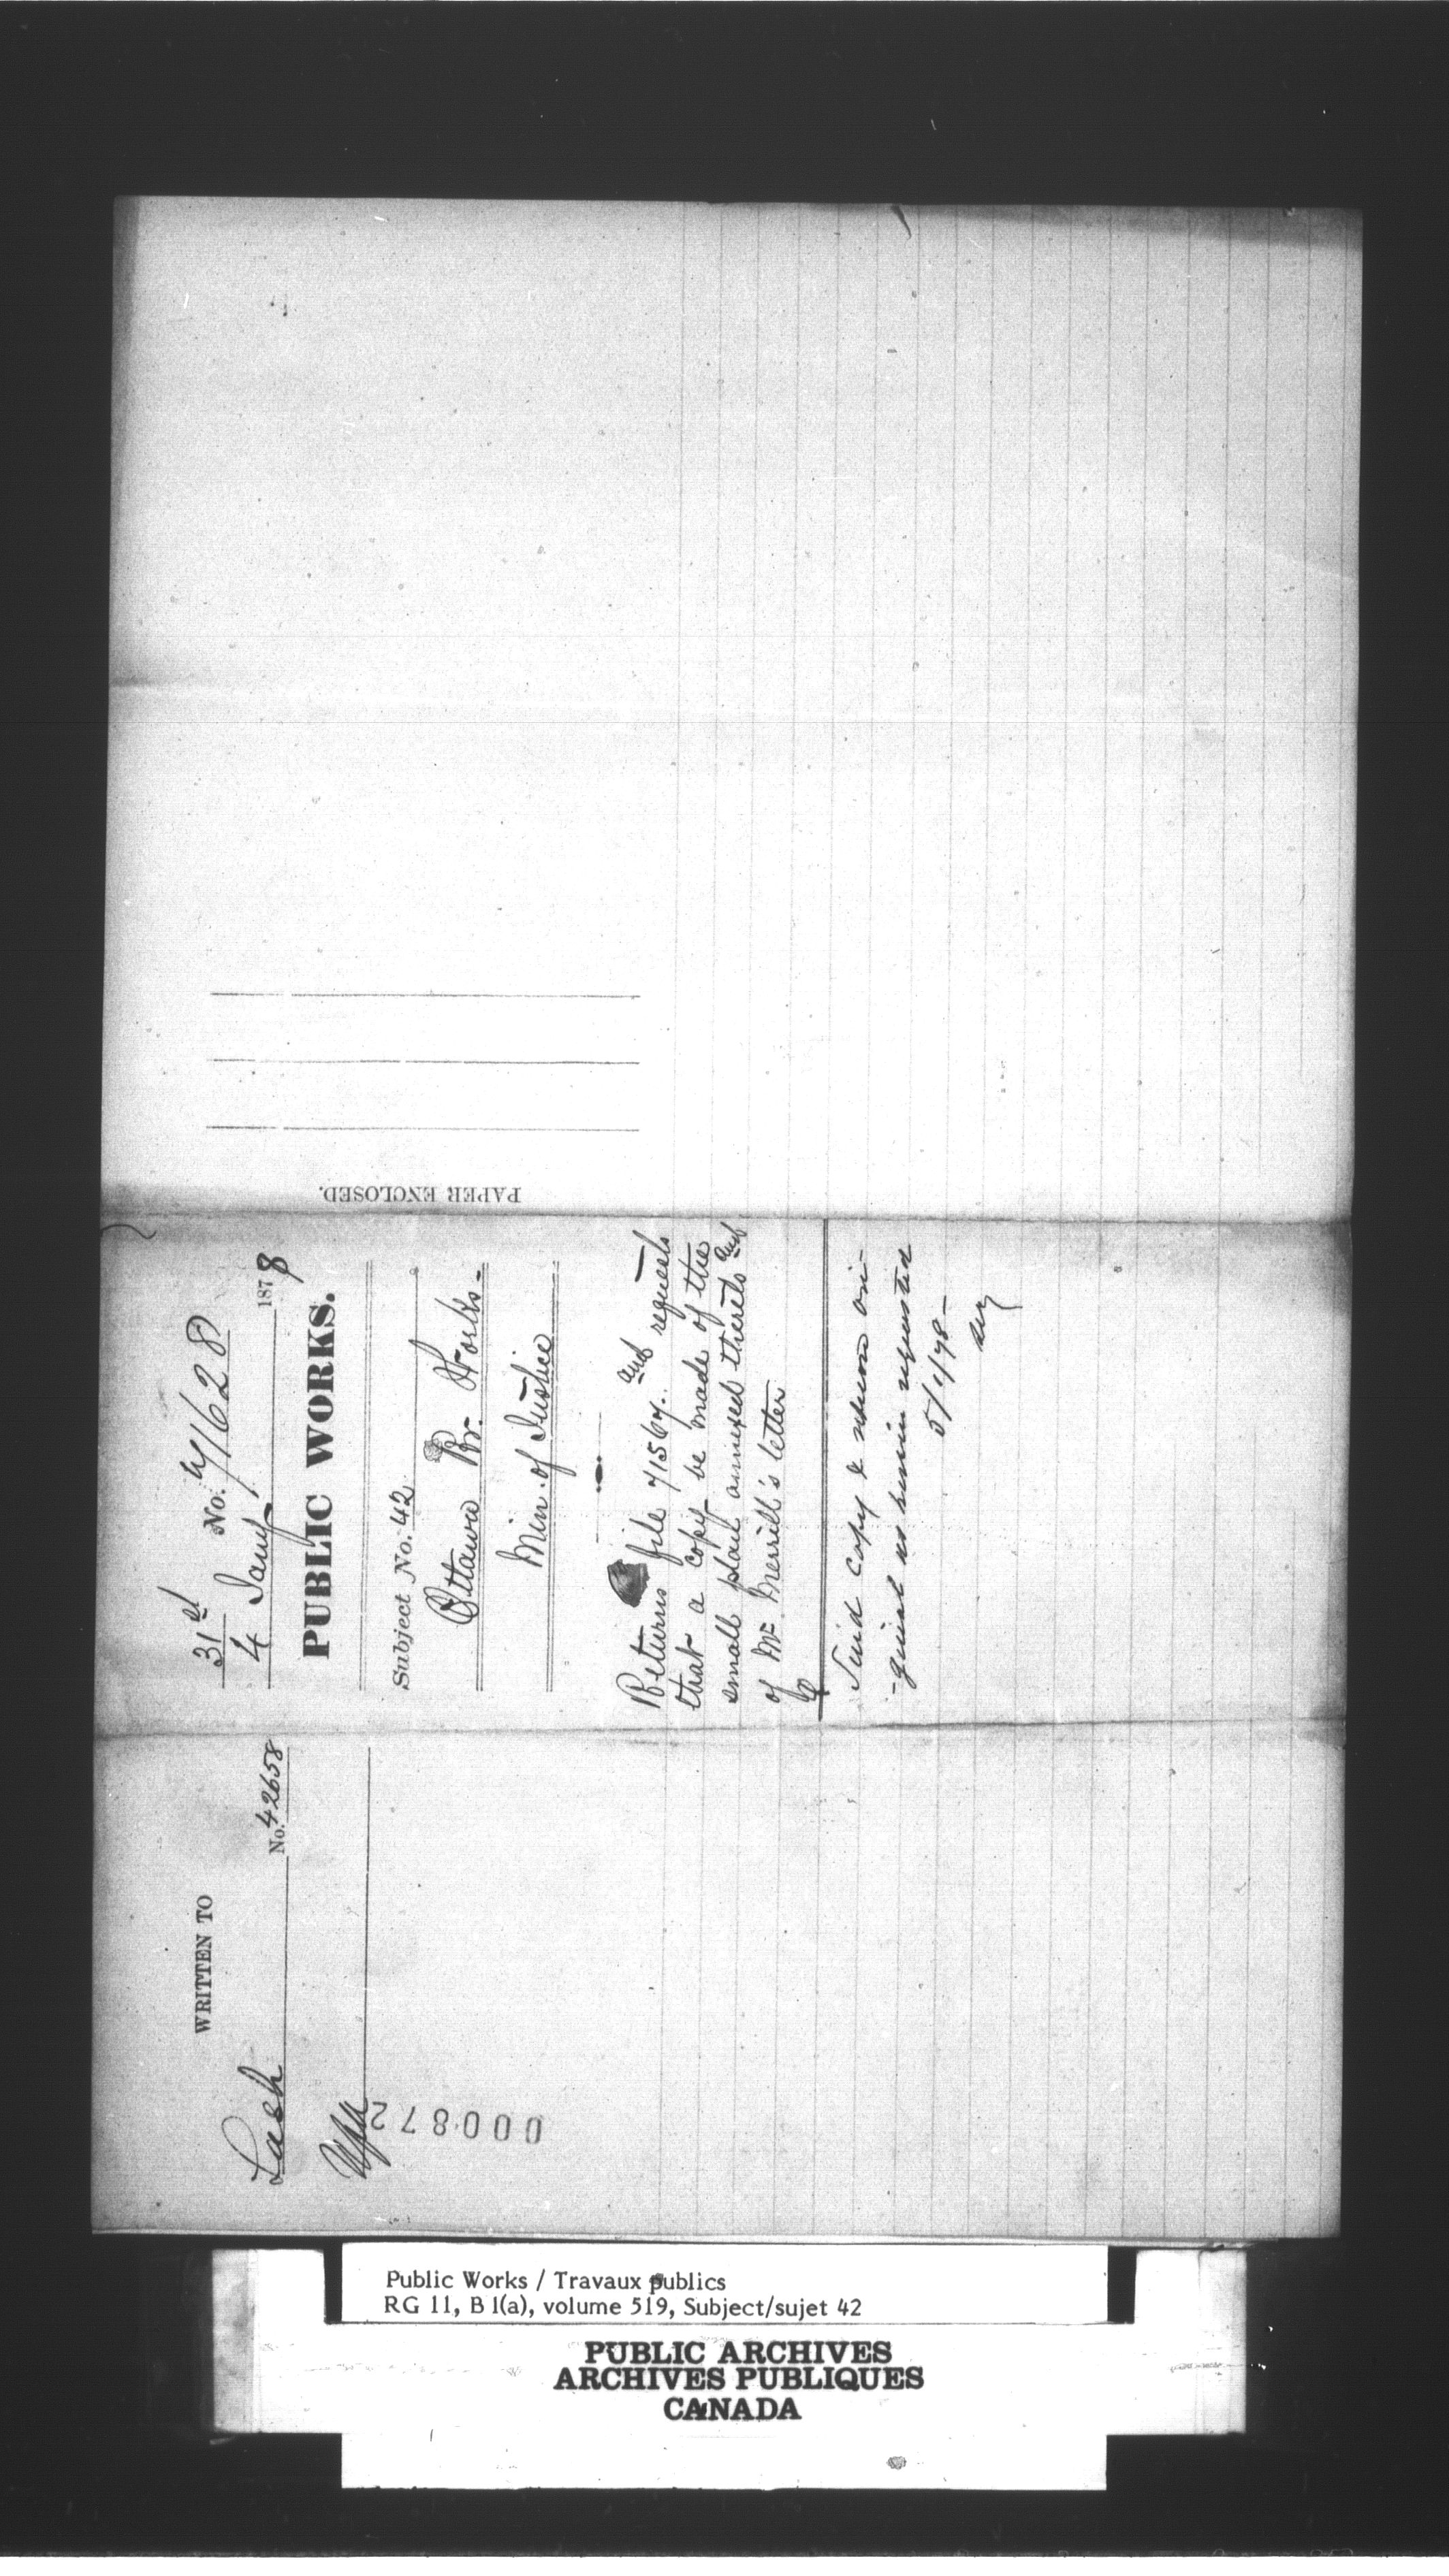 WRITTEN TO
Lash No. 42658
000872
31st No. 71628
4 Jany 1878
PUBLIC WORKS.
Subject No. 42
Ottawa Rr. Works-
Min. of Justice
Returns file 71567. and requests
that a copy be made of the
small plan annexed thereto and
of Mr. Merrill's letter
Send copy & return ori-
-ginal as herein requested
5/1/78-
PAPER ENCLOSED.
Public Works / Travaux publics
RG 11, B 1(a), volume 519, Subject/sujet 42
PUBLIC ARCHIVES
ARCHIVES PUBLIQUES
CANADA